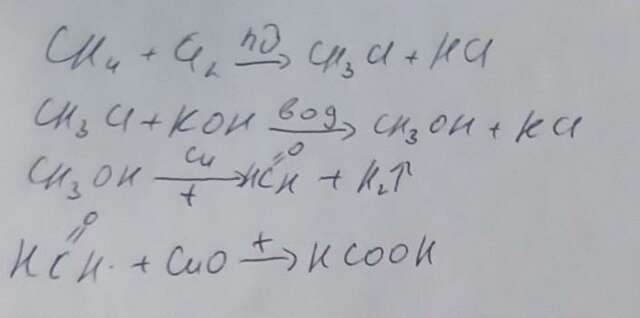 CH₄ + Cl₂ →(hν) CH₃Cl + HCl
CH₃Cl + KOH →(вод) CH₃OH + KCl
CH₃OH →(Cu, t) HC(=O)H + H₂↑
HC(=O)H + CuO →(t) HCOOH